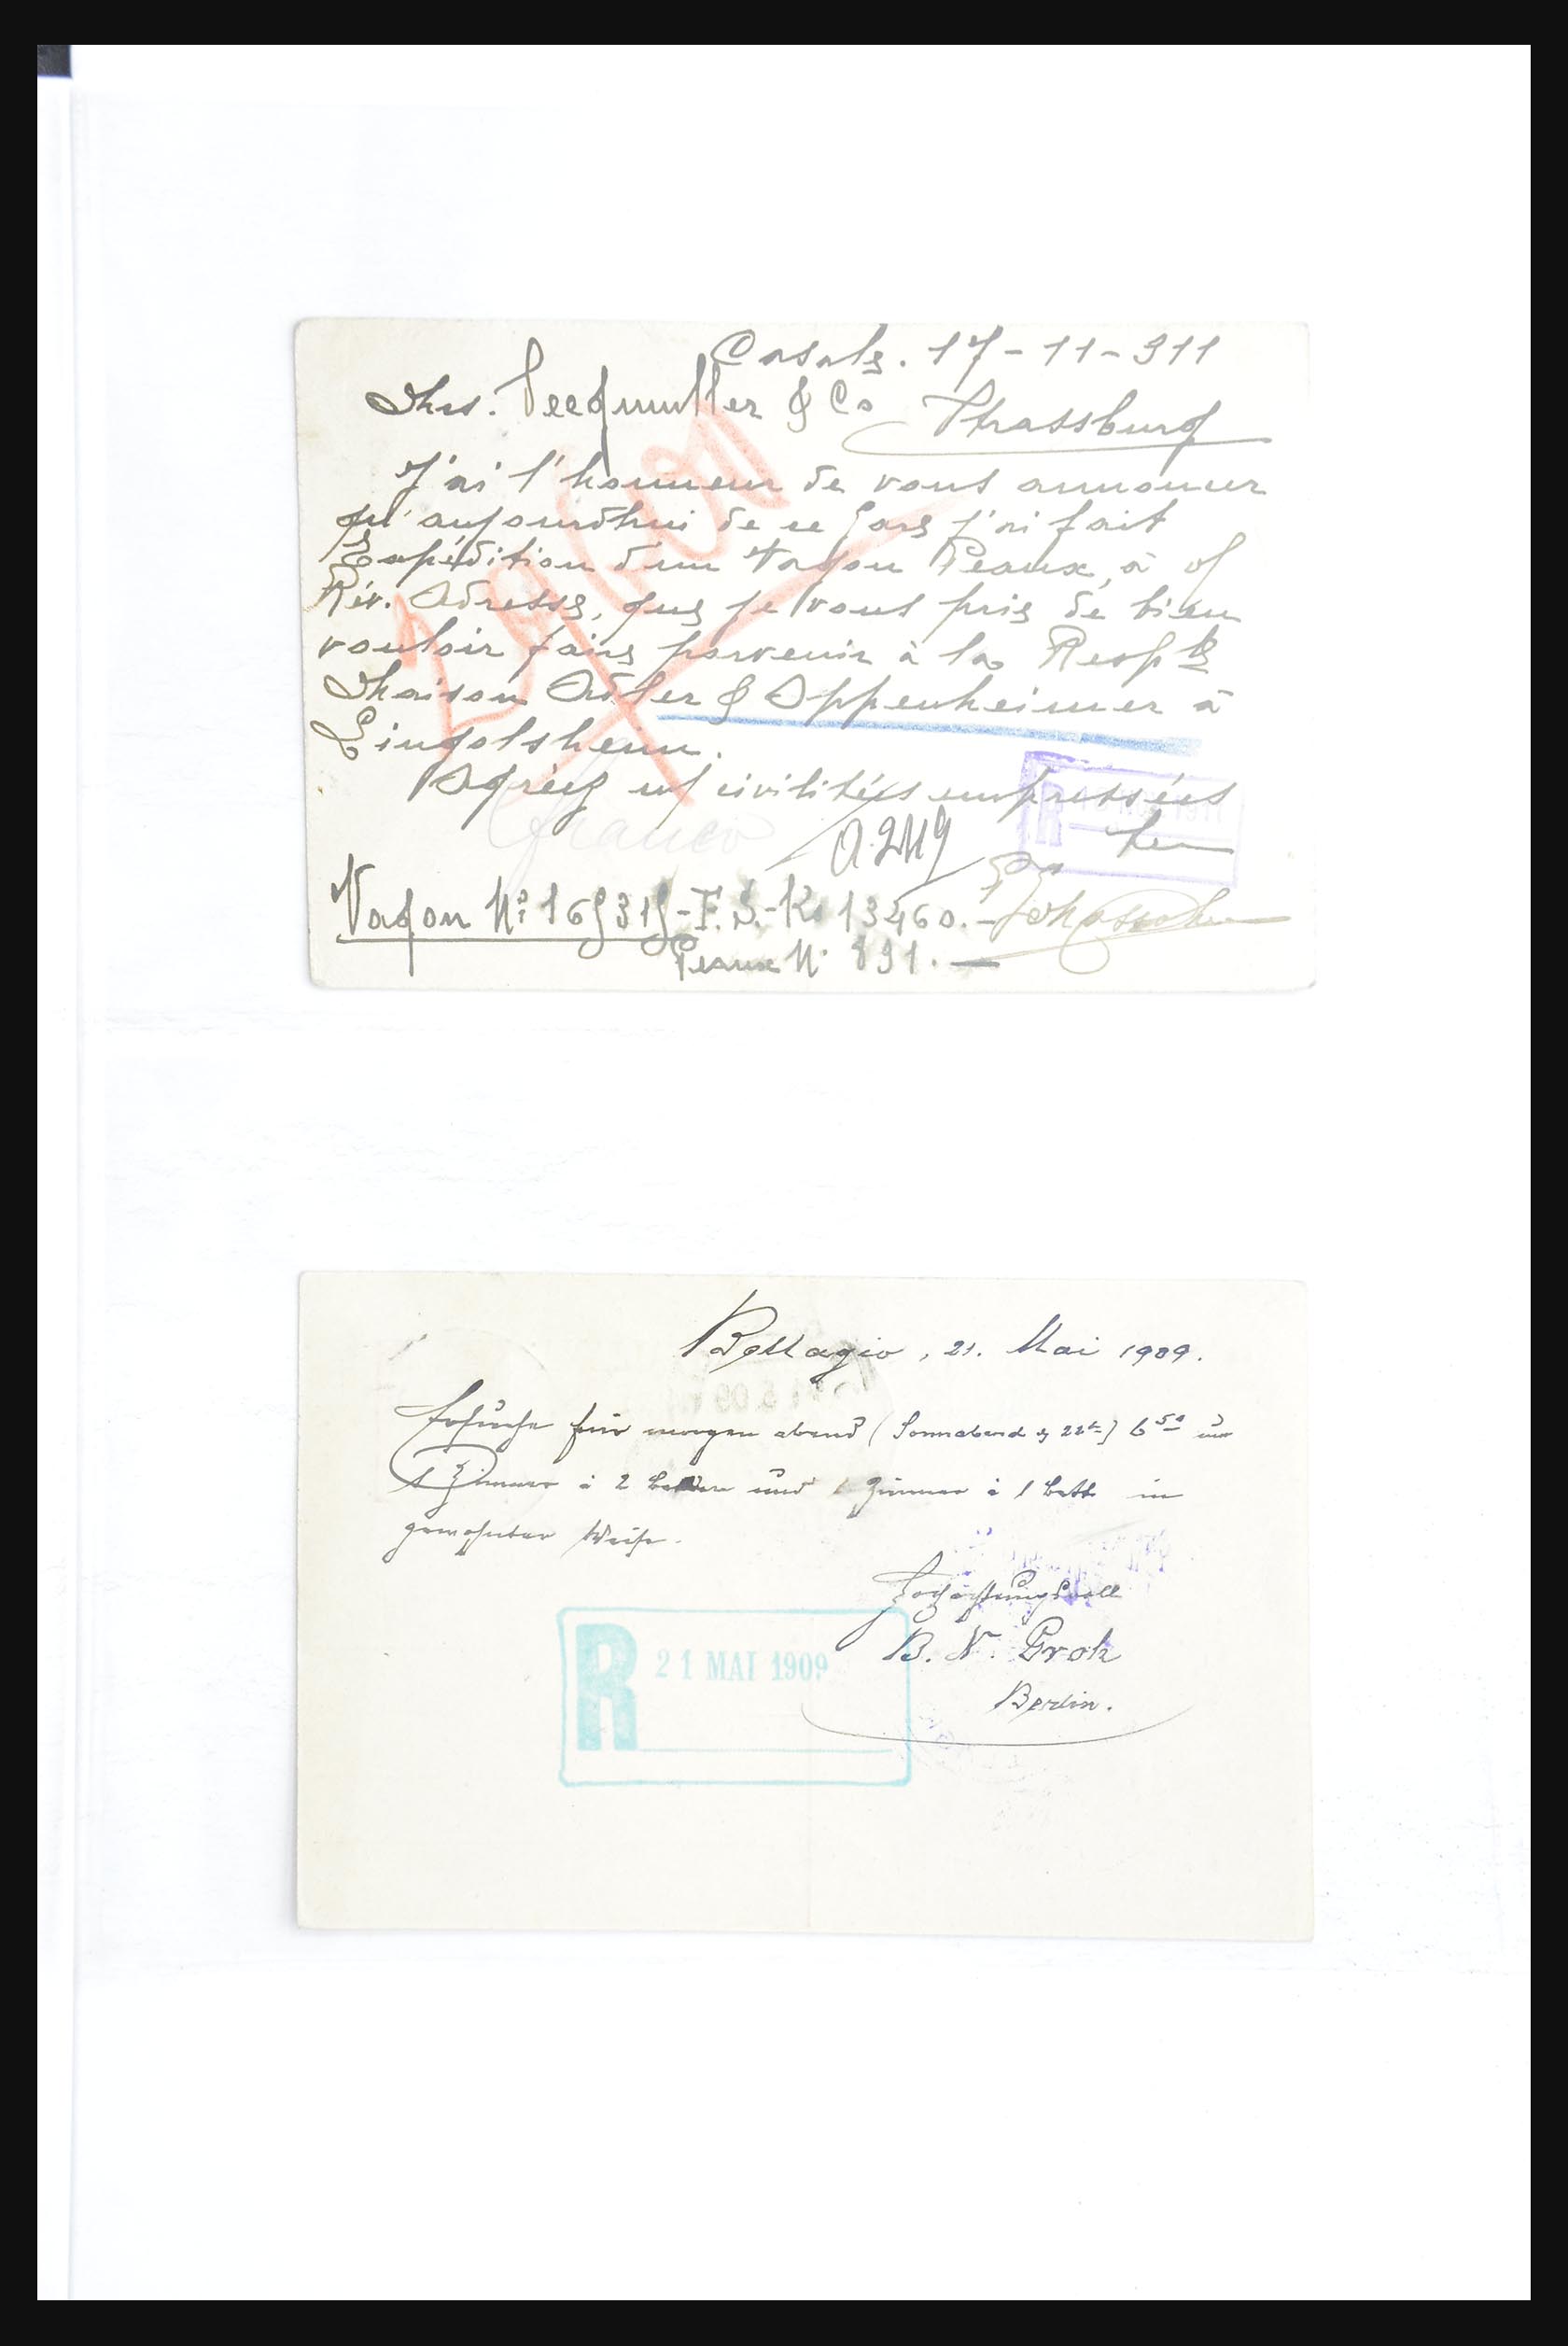 Casale. 17-11-911
Mrs. Seegmuller & Co Strassburg
J'ai l'honneur de vous annoncer
qu'aujourdhui de ce Gare j'ai fait
Expédition d'un Vagon Peaux, à v/
Rév. Adresse, que je vous prie de bien
vouloir faire parvenir à la Resp.ble
Maison Adler & Oppenheimer à
Lingolsheim.
Agréez mes civilitées empressées
franco
A.2119
Vagon No. 169319-F.S.-Ko 13460.-
Peaux N. 891.-
R
Bellagio, 21. Mai 1909.
Ersuche für morgen abend (Sonnabend d 22ten) 6 50 um
1 Zimmer à 2 Betten und 1 Zimmer à 1 Bett in
gewohnter Weise.
Hochachtungsvoll
B. N. Grok
Berlin.
R 21 MAI 1909